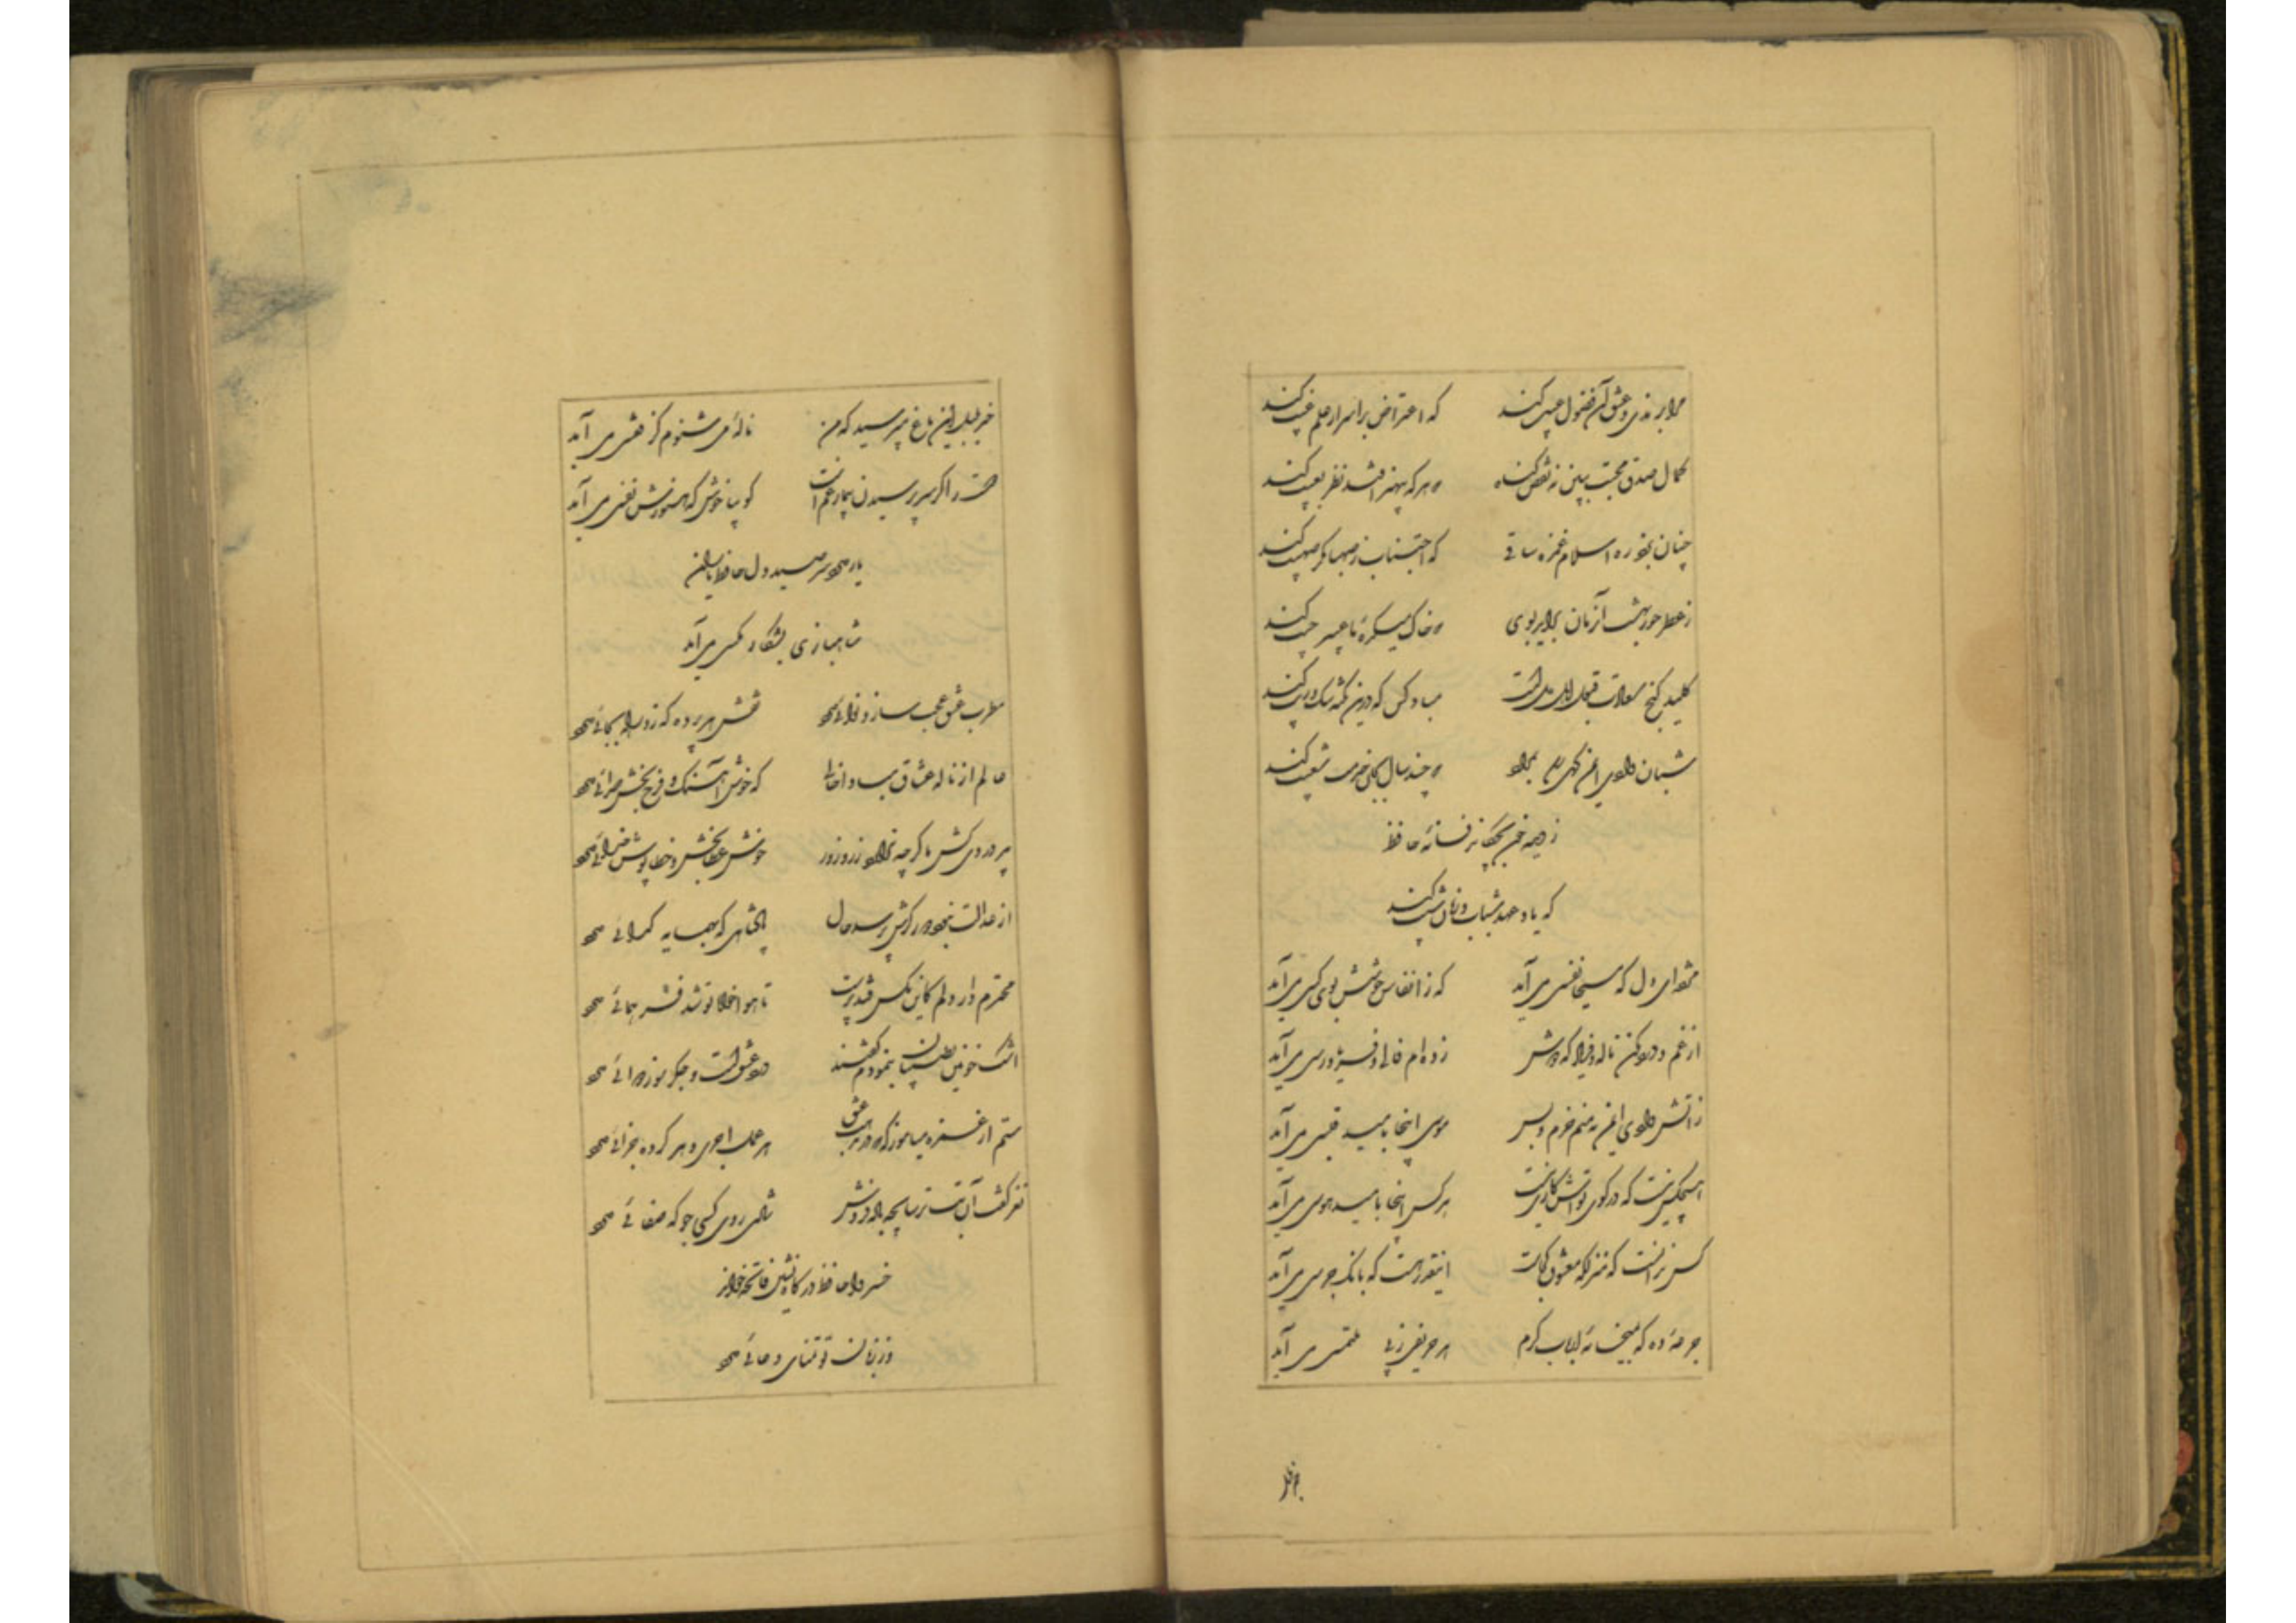 مرا برندی و عشق آن فضول عیب کند که اعتراض بر اسرار علم غیب کند
کمال صدق محبت ببین نه نقص گناه که هر که بی هنر افتد نظر بعیب کند
چنان بزد ره اسلام غمزه ساقی که اجتناب ز صهبا مگر صهیب کند
ز عطر حور بهشت آن زمان برآید بوی که خاک میکده ما عبیر جیب کند
کلید گنج سعادت قبول اهل دلست مباد کس که درین نکته شک و ریب کند
شبان وادی ایمن گهی رسد بمراد که چند سال بجان خدمت شعیب کند
ز دیده خون بچکاند فسانه حافظ
که یاد عهد شباب و زمان شیب کند
مژده ای دل که مسیحا نفسی می آید که ز انفاس خوشش بوی کسی می آید
از غم و درد مکن ناله و فریاد که دوش زده ام فالی و فریادرسی می آید
ز آتش وادی ایمن نه منم خرم و بس موسی اینجا بامید قبسی می آید
هیچکس نیست که در کوی تواش کاری نیست هر کس اینجا بامید هوسی می آید
کس ندانست که منزلگه معشوق کجاست اینقدر هست که بانگ جرسی می آید
جرعه ده که بمیخانه ارباب کرم هر حریفی ز پی ملتمسی می آید
خبر بلبل این باغ مپرسید که من ناله می شنوم کز قفسی می آید
دوست را گر سر پرسیدن بیمار غم است گو بیا خوش که هنوزش نفسی می آید
یار دارد سر صید دل حافظ یاران
شاهبازی بشکار مگسی می آید
مطرب عشق عجب ساز و نوائی دارد نقش هر پرده که زد راه بجائی دارد
عالم از ناله عشاق مبادا خالی که خوش آهنگ و فرح بخش هوائی دارد
پیر دردی کش ما گرچه ندارد زر و زور خوش عطابخش و خطاپوش خدائی دارد
از عدالت نبود دور گرش پرسد حال پادشاهی که بهمسایه گدائی دارد
محترم دار دلم کاین مگس قندپرست تا هواخواه تو شد فر همائی دارد
اشک خونین بطبیبان بنمودم گفتند درد عشق است و جگر سوز دوائی دارد
ستم از غمزه میاموز که در مذهب عشق هر عمل اجری و هر کرده جزائی دارد
نغز گفت آن بت ترسا بچه باده فروش شادی روی کسی جو که صفائی دارد
خسروا حافظ درگاه نشین فاتحه خواند
وز زبان تو تمنای دعائی دارد